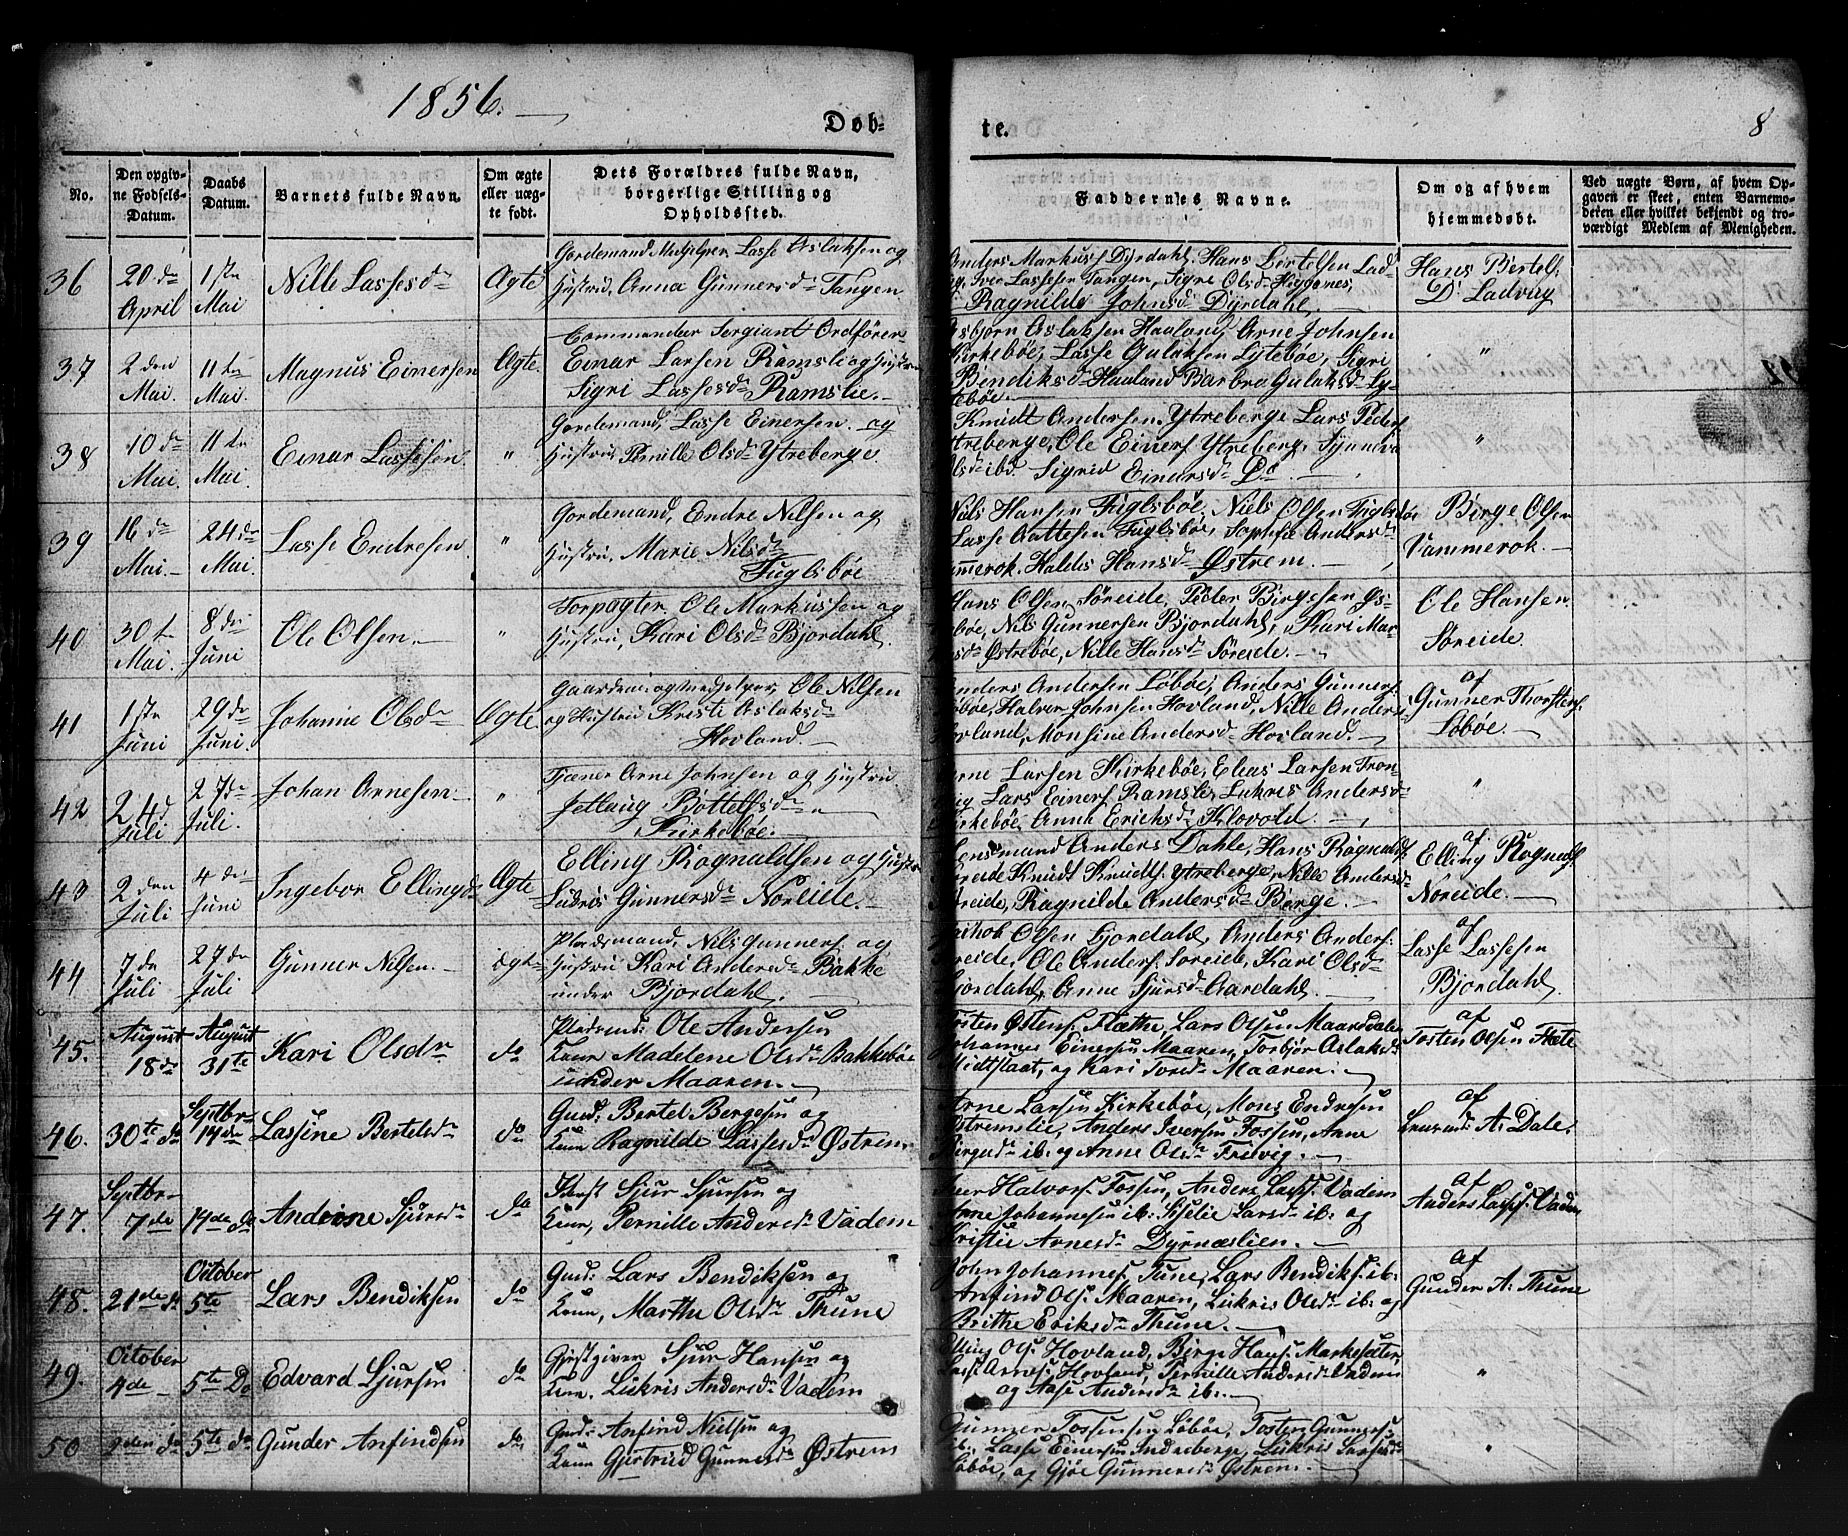 1856.
Døb-
te.
8
No.
Den opgiv-
ne Fødsels-
Datum.
Daabs
Datum.
Barnets fulde Navn.
Om ægte
eller uæg-
te født.
Dets Forældres fulde Navn,
borgerlige Stilling og
Opholdssted.
Faddernes Navne.
Om og af hvem
hjemmedøbt.
Ved uægte Børn, af hvem Op-
gaven er skeet, enten Barnemo-
deren eller hvilket bekjendt og tro-
værdigt Medlem af Menigheden.
36
20de
April
1ste
Mai
Nille Lassesdr
Ægte
Gordemand Medhjelper Lasse Aslaksen og
Hustrue, Anna Gunnersdr Tangen
Anders Markusf Dyrdahl, Hans Bertelsen Lad-
Iver Lassesen Tangen, Sigre Olsdr
Ragnilde Johnsdr Dyrdahl,
Hans Bertelf:
Dr Ladvig
37
2den
Mai.
11te
Mai.
Magnus Einersen
Ægte
Commandeer Sergiant Ordfører
Einar Larsen Ramsli og Hustrue
Sigri Lassesdr Ramslie.
Asbjørn Aslaksen Haaland, Arne Johnsen
Kirkebøe, Lasse Gulaksen Lytebøe, Sigri
Bendiksdr Haaland Barbra Gulaksdr Ly-
tebøe
"
38
10de
Mai.
11te
Mai.
Einar Lassesen
"
Gordemand, Lasse Einersen og
Hustrue Pernille Olsdr Ytreberge
Knudt Andersen Ytreberge Lars Peders
Ytreberge, Ole Einerf Ytreberg, Synneva
Olsdr ibd Sigrid Einarsdr Do
"
39
16de
Mai.
24de
Mai.
Lasse Endresen
"
Gordemand, Endre Nilsen og
Hustrue, Marie Nilsdr
Fuglsbøe
Niels Hansen Fuglsbøe, Niels Olsen Fuglsbøe
Lasse Aattesen Fuglsbøe, Sophie Andersdr
Vammerok. Haldis Hansdr Østrem.
Birge Olsen
Vammerok.
40
30te
Mai.
8de
Juni
Ole Olsen
"
Forpagter, Ole Markussen og
Hustrue, Kari Olsdr Bjordahl
Hans Olsen Søreide, Peder Birgesen Øs-
bøe, Nils Gunnersen Bjordahl, Kari Mar-
sdr Østrebøe, Nille Hansdr Søreide.
Ole Hansen
Søreide.
41
1ste
Juni
29de
Juni.
Johanne Olsdr
Ægte
Gaardem: og Medhjelper, Ole Nilsen
og Hustrue Kristi Aslaksdr
Hovland.
Anders Andersen Løbøe, Anders Gunnerf
Løbøe, Halver Johnsen Hovland, Nille Anders
Hovland, Monsine Andersdr Hovland.
af
Gunner Thorstensf
Løbøe.
42
24d
Juli
27de
Juli.
Johan Arnesen
"
Tjæner Arne Johnsen og Hustrue
Jetlaug Bottelfsdr
Kirkebøe.
Arne Larsen Kirkebøe, Elias Larsen Tron-
vig Lars Einerf Ramsli, Lukris Andersdr
Kirkebøe, Anna Erichsdr Klovold.
"
43
2den
Juli
4de
Juni
Ingebor Ellingsd
Ægte
Elling Rognaldsen og Hustrue
Ludris Gunnersdr Noreide.
Lensmand Anders Dahle, Hans Rognaldf
Noreide Knudt Knudtf. Ytreberge, Nille Andersdr
Noreide, Ragnilde Andersdr Berge.
af
Elling Rognaldf
Noreide.
44
7de
Juli
27de
Juli
Gunner Nilsen.
Ægte
Pladsmand, Nils Gunnerf. og
Hustrue Kari Andersdr Bakke
under Bjordahl.
Olsen Bjordahl, Anders Anderf:
Søreide, Ole Anderf Søreide, Kari Olsdr
Bjordahl, Anne Sjursdr Aardahl.
af
Lasse Lassesen
Bjordahl.
45.
August
18de
August
31te
Kari Olsdr
do
Pladsmd: Ole Andersen
Kone Madelene Olsdr Bakkebøe
under Maaren.
Tosten Østensf. Flæthe, Lars Olsen Maarsdalen
Johannes Einersen Maaren, Torbjør Aslaksdr
Midtflaat, og Kari Toresdr Maaren.
af
Tosten Olsen Flete
46.
30te do
Septbr
14de
Lassine Bertelsdr
do
Gmd: Bertel Bergesen og
Kone Ragnilde Lassesdr Østrem
Arne Larsen Kirkebøe, Mons Endresen
Østremslie, Anders Iversen Fossen, Anne
Birgesdr ib: og Anne Olsdr Fridvig.
af
Lensmd: A: Dale.
47.
Septbr
7de
14de do
Andrine Sjursdr
do
Sjur Sjursen og
Kone, Pernille Andersdr Vadem
Iver Halvorf. Fossen, Anders Lassf. Vadem
Arne Johannesen ib: Sjelie Larsdr ib: og
Kristie Arnesdr Dyrnæslien.
af
Anders Lassf. Vadem
48.
21de do
October
5te
Lars Bendiksen
do
Gmd: Lars Bendiksen og
Kone, Marthe Olsdr Thune
John Johannesf. Tune, Lars Bendiksf. ib:
Anfind Olsf. Maaren, Lukris Olsdr ib: og
Brithe Eriksdr Thune.
af
Gunder A: Thune
49.
October
4de
5te Do
Edvard Sjursen
do
Gjestgiver Sjur Hansen og
Kone. Lukris Andersdr Vadem
Elling Olsf Hovland, Birge Hansf. Markesæter,
Lassf. Arnesf. Hovland, Pernille Andersdr Vadem
og Aase Andersdr ib:
"
50
2den do
5te do
Gunder Anfindsen
do
Gmd: Anfind Nielsen og
Kone Gjertrud Gunnersdr Østrem
Gunner Tossensen Løbøe, Tosten Gunnersf
ib: Lasse Einersen Indreberge, Lukris Larsesdr
Løbøe, og Gjøe Gunnersdr Østrem.
"